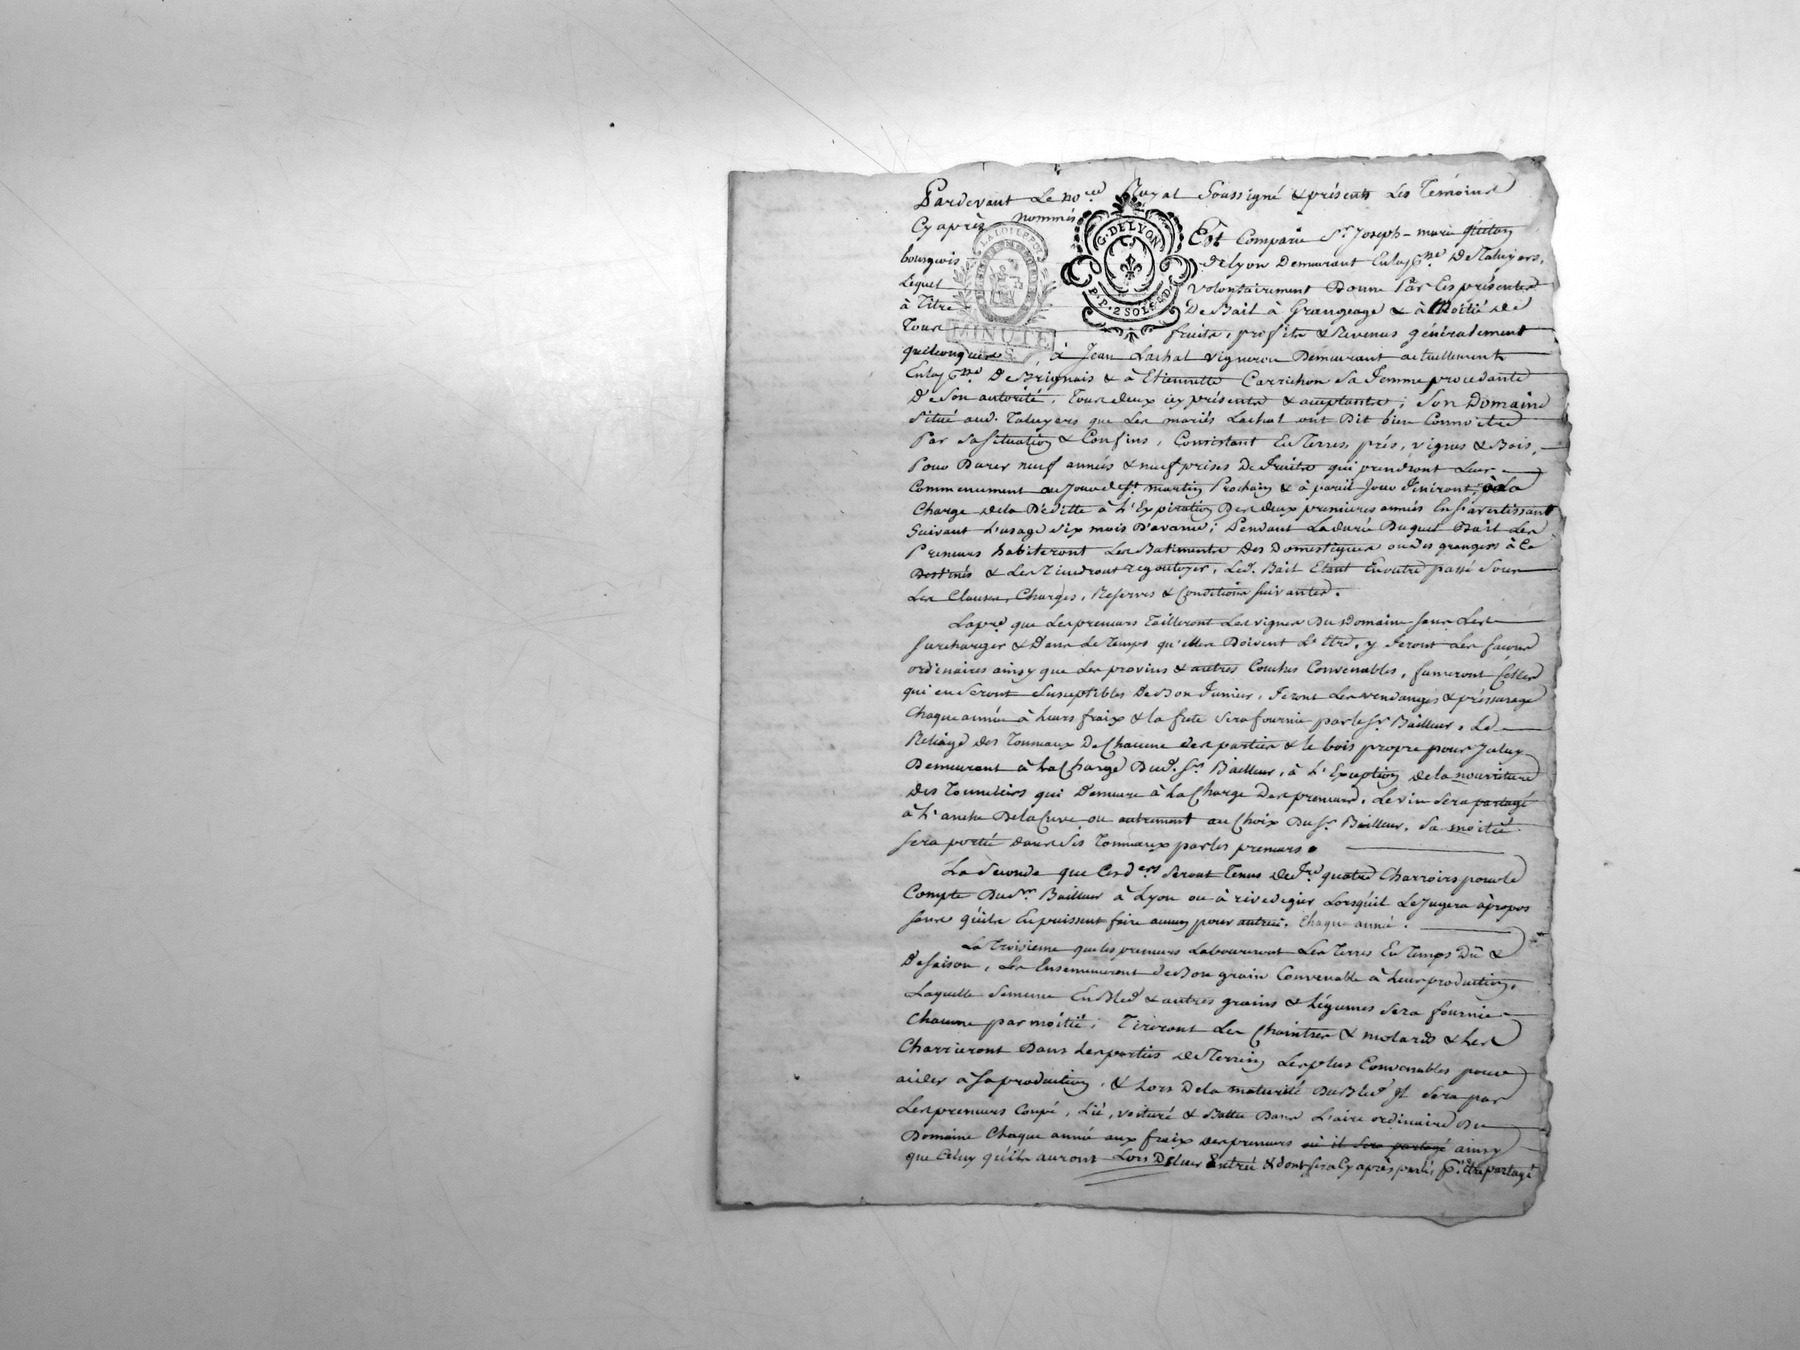 Pardevant Le no.re Royal Soussigné & présents Les Temoins
Cyaprès nommés
Est Comparu Sr. Joseph-marie
bourgeois de Lyon Demeurant Enlap.ne De Taluyers,
Lequel volontairement Donne Par Ces présentes
à Titre De Bail à Grangeage & à Moitié de
Tous fruits, profits & Revenus généralement
quelconques, à Jean Lachal vigneron Demeurant actuellement
Enlap.ne De Brignais & à Etiennette Carrichon Sa Femme procedante
De Son autorité, Tous deux icy présents & acceptants; Son Domaine
Situé aud. Taluyers que Les mariés Lachal ont Dit bien Connoitre
Par Sa Situation & Confins, Consistant En Terres, prés, vignes & Bois,
Pour Durer neuf années & neuf prises De Fruits qui prendront Leur
Commencement au Jour de St. martin Prochain & à pareil Jour Finiront, à La
Charge de la Déditte à L'Expiration Des deux premieres années En s'avertissant
Suivant L'usage Six mois D'avance; Pendant La durée Duquel Bail Les
Preneurs habiteront Les Batiments Des Domestiques ou Des grangers à Ce
Destinés & Les Tiendront regoutoyer, Led. Bail Etant Enoutre passé Sous
Les Clauses, Charges, Reserves & Conditions Suivantes.
La pre. que Les preneurs Tailleront Les vignes Du Domaine Sans Les
Surcharger & Dans Le Temps qu'elles Doivent L'etre, y Feront Les facons
ordinaires ainsy que Les provins & autres Couches Convenables, fumeront Celles
qui en Seront Susceptibles De Bon Fumier, Feront Les vendanges & préssurage
Chaque année à Leurs fraix & la futé Sera fournie par le Sr. Bailleur, Le
Reliage des Tonneaux De Chacune des parties & le bois propre pour Jceluy
Demeurant à La Charge Dud. Sr. Bailleur, à L'Exception de la nourriture
des Tonneliers qui Demeure à La Charge Des preneurs, Le vin Sera partagé
à L'anche De La Cuve ou autrement au Choix Du Sr. Bailleur, Sa moitié
Sera porté dans Ses Tonneaux par les preneurs.
La Seconde que Ces d.ers Seront Tenus de F.re quatre Charroirs pour le
Compte Du Sr. Bailleur à Lyon ou à rivedegier Lorsqu'il Le Jugera àpropos
Sans qu'ils En puissent faire aucun pour autrui. Chaque année.
La Troisieme que les preneurs Laboureront Les Terres En Temps Dû &
De Saison, Les Ensemenceront de Bon grain Convenable à Leur production,
Laquelle Semence En Bled & autres grains & Légumes Sera fournie
Chacune par moitié; Tireront Les Chaintres & molards & Les
Charrieront Dans Les parties de Terrein Les plus Convenables pour
aider à Sa production, & Lors De la maturité Du Bled Jl Sera par
Les preneurs Coupé, Lié, voituré & Battu Dans L'aire ordinaire Du
Domaine Chaque année aux fraix des preneurs où il Sera partagé ainsy
que Celuy qu'ils auront Lors De Leur Entrée & dont Sera Cy après parlé, p.r être partagé
G. DE LYON
P.P. 2 SOLS 8 D.
LA LOI LE ROI
MINUTE